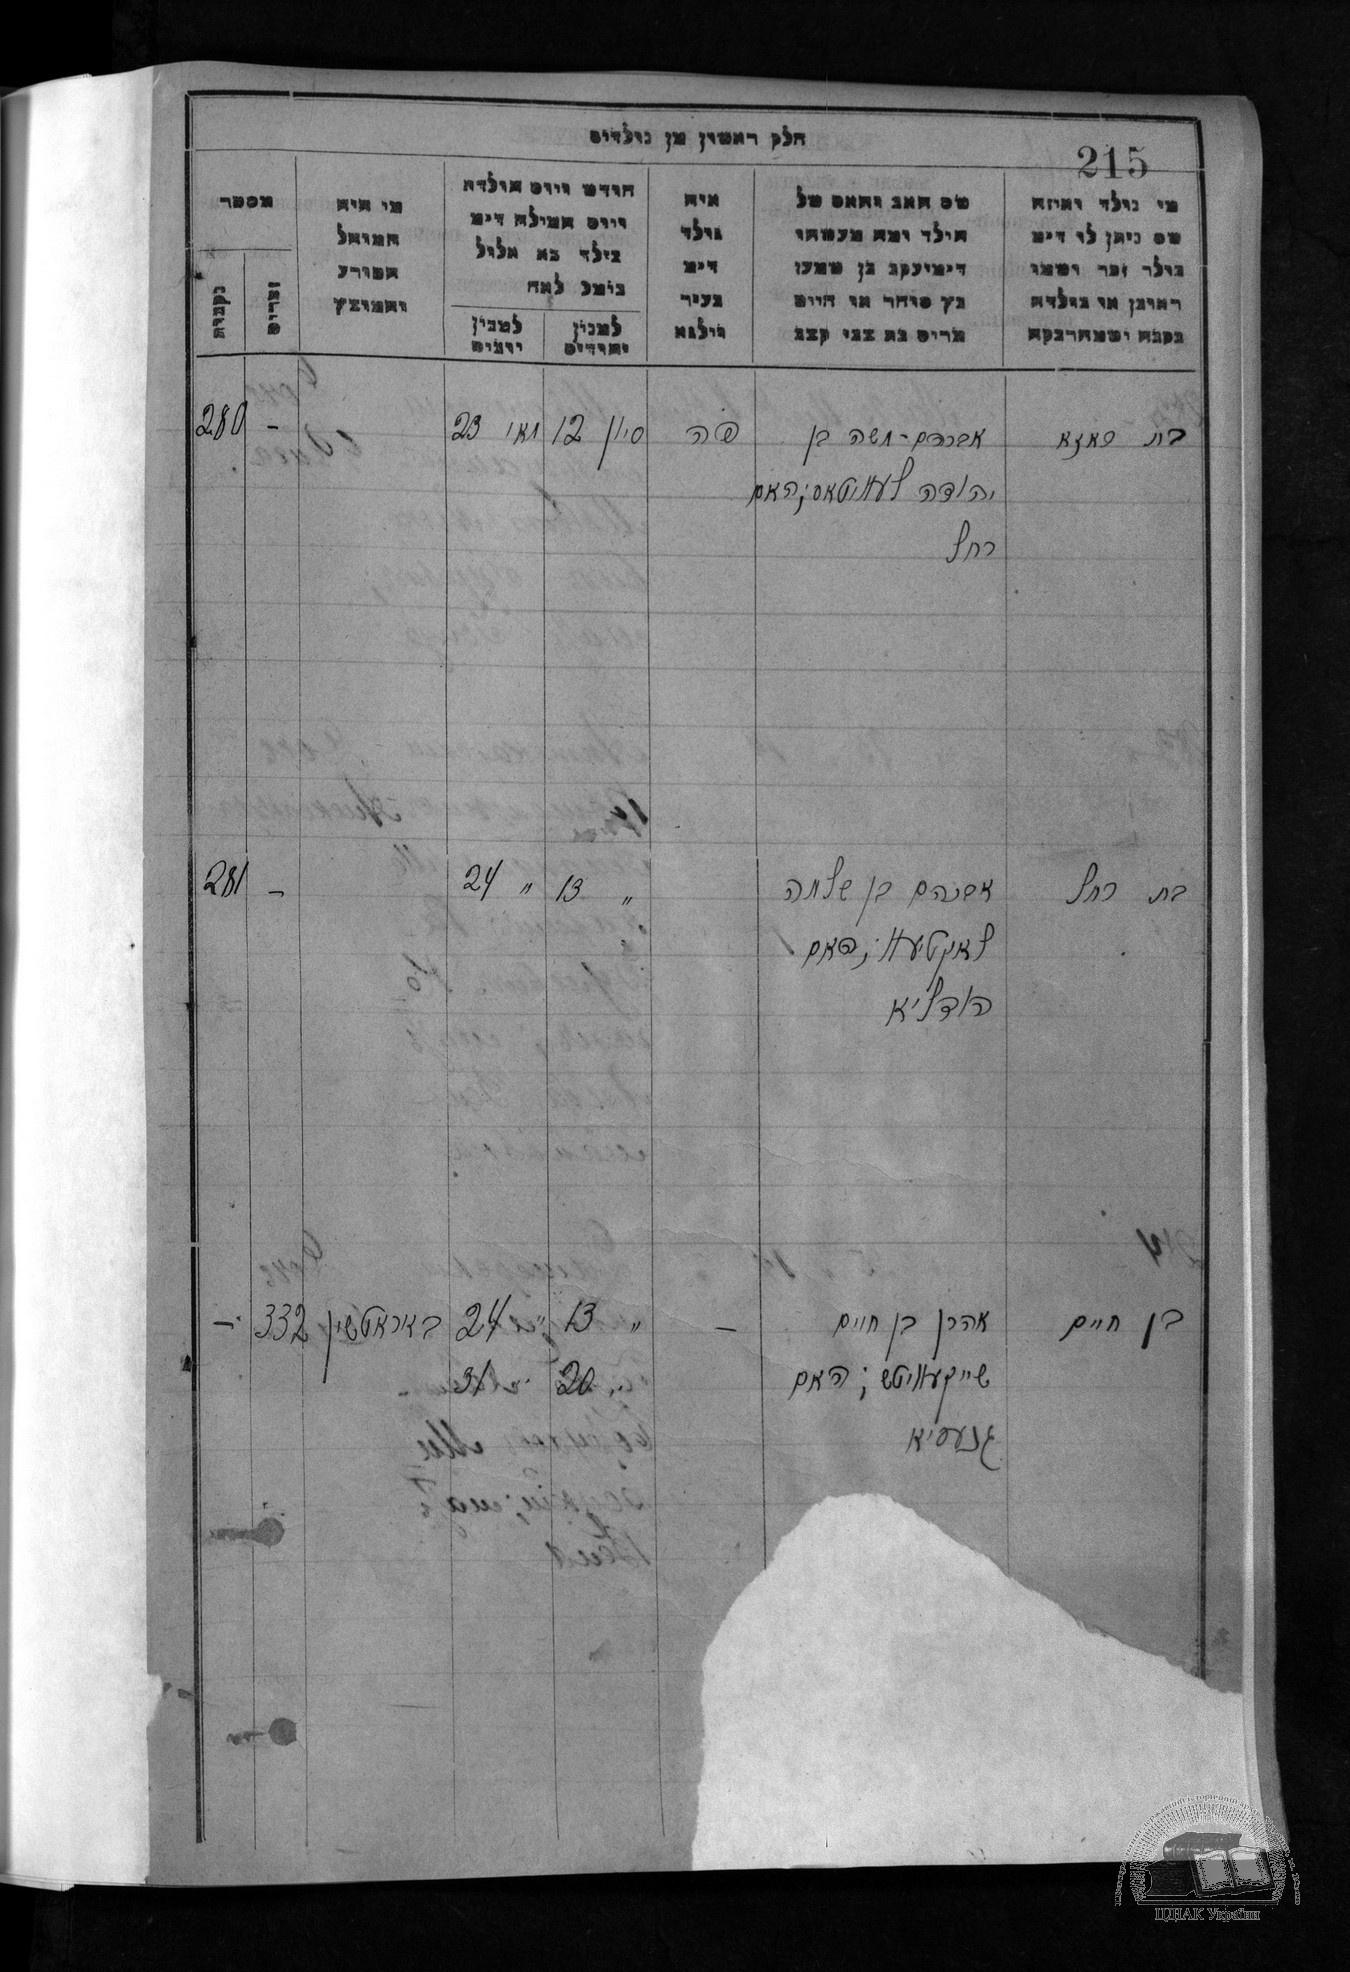 חלק ראשון מן נולדים
215
מי נולד ואיזה
שם ניתן לו דימ
נולד זכר ושמו
ראובן או נולדה
נקבה ושמה רבקה
שם האב והאם של
הילד ומה מעשהו
דימ יעקב בן שמעון
כץ סוחר או חיים
מרים בת צבי קצב
איה
נולד
דימ
בעיר
ווילנא
חודש ויום הולדה
ויום המילה דימ
נולד בא אלול
נימל לאח
למנין
יהודים
למנין
יוונים
מי היה
המוהל
הפורע
והמוצץ
מספר
זכרים
נקבות
בת פאזא
אברהם-משה בן
יהודה לעוויטאס; האם
רחל
פה
סיון 12
מאי 23
-
280
בת רחל
אברהם בן שלמה
לאקטיעוו; האם
האדליא
" 13
" 24
-
281
בן חיים
אהרן בן חיים
שייקעוויטש; האם
גנעסיא
-
" 13
" 24
" 20
" 31
באיראטשין
332
-
ЦДІАК України